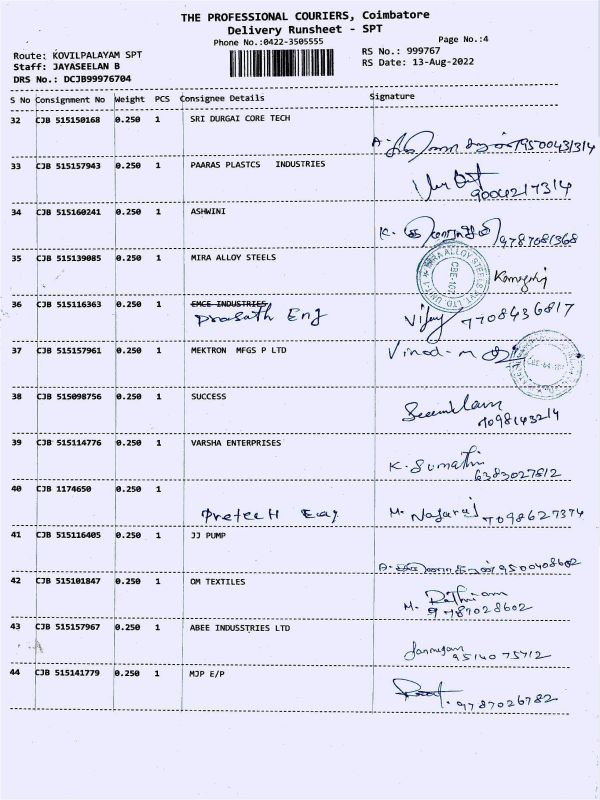 THE PROFESSIONAL COURIERS, Coimbatore
Delivery Runsheet - SPT
Phone No.:0422-3505555
Page No.:4
Route: KOVILPALAYAM SPT
RS No.: 999767
Staff: JAYASEELAN B
RS Date: 13-Aug-2022
DRS No.: DCJB99976704
S No Consignment No Weight PCS Consignee Details Signature
32 CJB 515150168 0.250 1 SRI DURGAI CORE TECH
33 CJB 515157943 0.250 1 PAARAS PLASTCS INDUSTRIES
9004217314
34 CJB 515160241 0.250 1 ASHWINI
K. 9787081368
35 CJB 515139085 0.250 1 MIRA ALLOY STEELS
36 CJB 515116363 0.250 1 EMCE INDUSTRIES
Prasath Eng Vijay 7708436817
37 CJB 515157961 0.250 1 MEKTRON MFGS P LTD
Vinod-m
38 CJB 515098756 0.250 1 SUCCESS
7098143214
39 CJB 515114776 0.250 1 VARSHA ENTERPRISES
K. Sumathi
6383027812
40 CJB 1174650 0.250 1
M. Nagaraj 7098627374
41 CJB 515116405 0.250 1 JJ PUMP
9500408602
42 CJB 515101847 0.250 1 OM TEXTILES
M. 9787028602
43 CJB 515157967 0.250 1 ABEE INDUSSTRIES LTD
9514075712
44 CJB 515141779 0.250 1 MJP E/P
9787026782